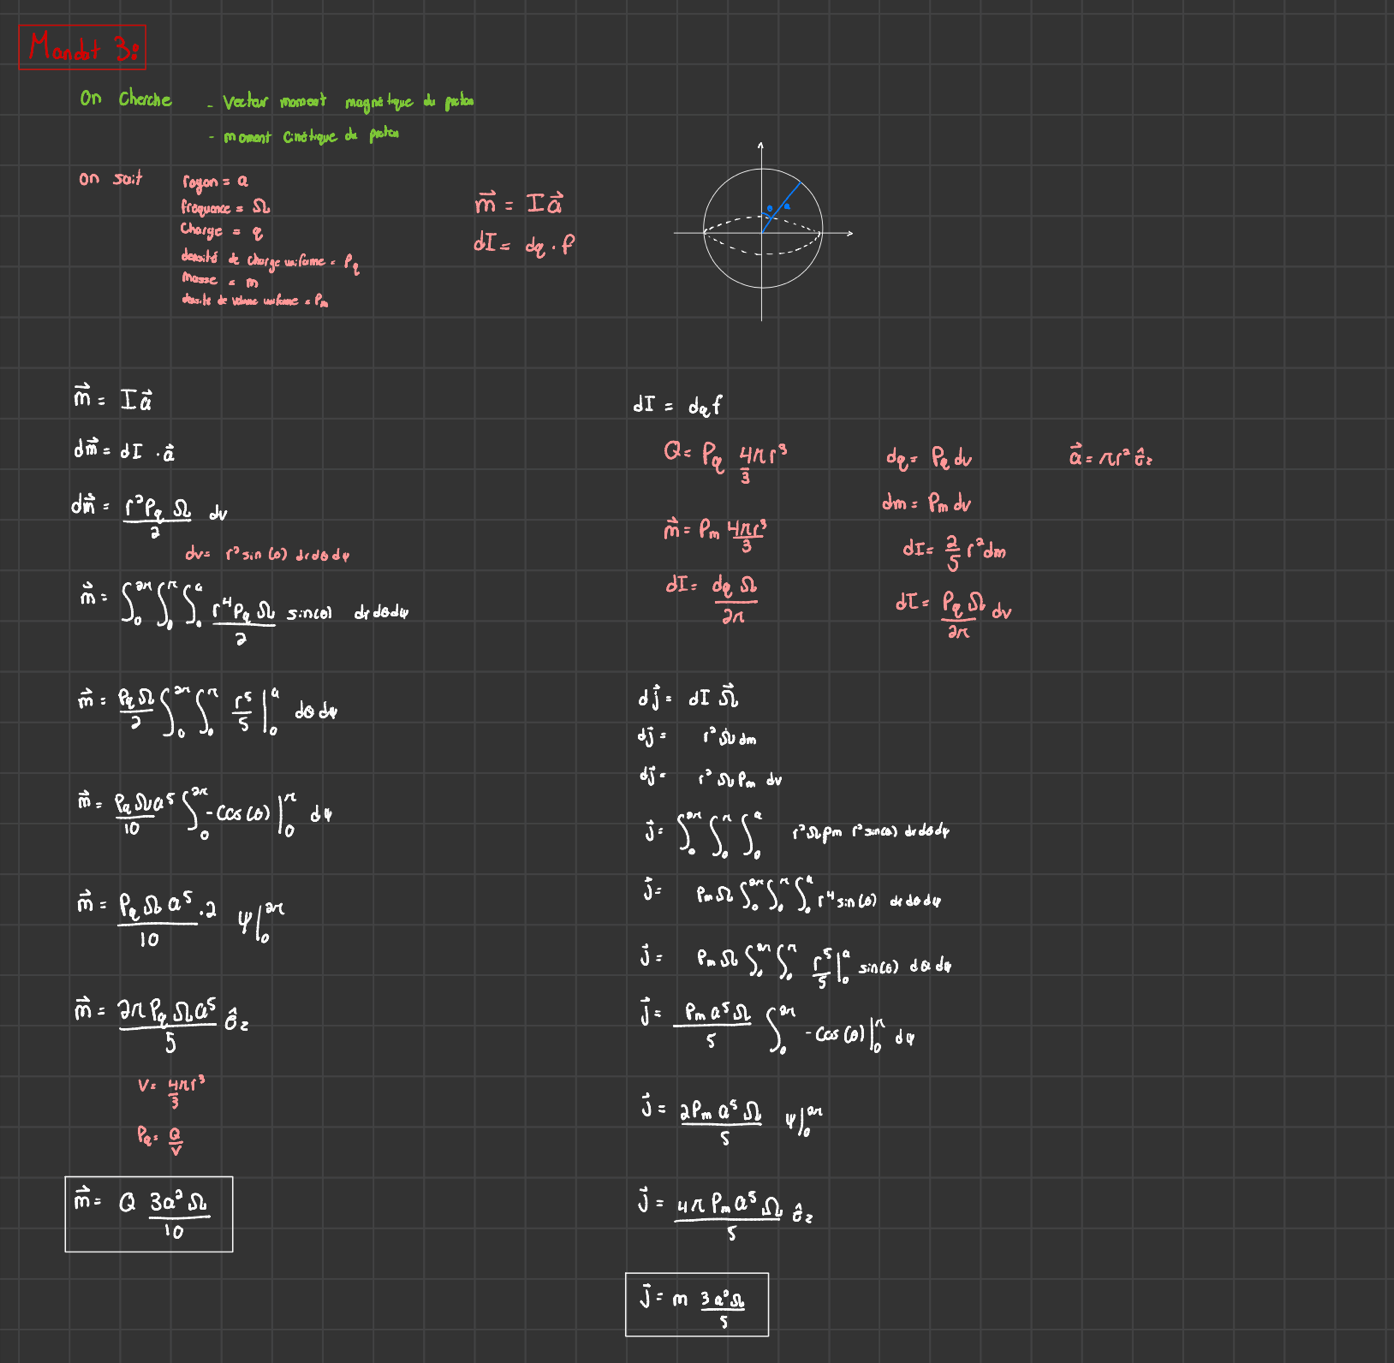 Mandat 3:
On cherche - Vecteur moment magnétique du proton
- moment cinétique du proton
On sait
rayon = a
fréquence = Ω
Charge = q
densité de charge uniforme = ρq
masse = m
densité de volume uniforme = ρm
m⃗ = I a⃗
dI = dq · f
θ a
m⃗ = I a⃗
dm⃗ = dI · a⃗
dm⃗ = r²ρq Ω / 2 dv
dv = r² sin(θ) dr dθ dψ
m⃗ = ∫₀^2π ∫₀^π ∫₀^a r⁴ρq Ω / 2 sin(θ) dr dθ dψ
m⃗ = ρq Ω / 2 ∫₀^2π ∫₀^π r⁵/5 |₀^a dθ dψ
m⃗ = ρq Ω a⁵ / 10 ∫₀^2π -cos(θ) |₀^π dψ
m⃗ = ρq Ω a⁵ / 10 · 2 ψ |₀^2π
m⃗ = 2π ρq Ω a⁵ / 5 σ̂z
V = 4πr³ / 3
ρq = Q / V
m⃗ = Q 3a²Ω / 10
dI = dq f
Q = ρq 4πr³ / 3
dq = ρq dv
a⃗ = πr² σ̂z
m⃗ = ρm 4πr³ / 3
dm = ρm dv
dI = 2/5 r² dm
dI = dq Ω / 2π
dI = ρq Ω / 2π dv
dj⃗ = dI Ω⃗
dj⃗ = r² Ω dm
dj⃗ = r² Ω ρm dv
j⃗ = ∫₀^2π ∫₀^π ∫₀^a r² Ω ρm r² sin(θ) dr dθ dψ
j⃗ = ρm Ω ∫₀^2π ∫₀^π ∫₀^a r⁴ sin(θ) dr dθ dψ
j⃗ = ρm Ω ∫₀^2π ∫₀^π r⁵/5 |₀^a sin(θ) dθ dψ
j⃗ = ρm a⁵ Ω / 5 ∫₀^2π -cos(θ) |₀^π dψ
j⃗ = 2ρm a⁵ Ω / 5 ψ |₀^2π
j⃗ = 4π ρm a⁵ Ω / 5 σ̂z
j⃗ = m 3a²Ω / 5